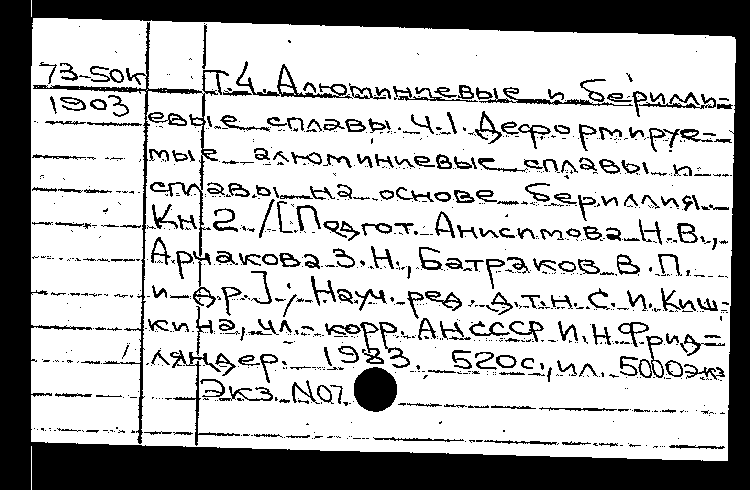 73-50к
1903
Т.4. Алюминиевые и берилли=
евые сплавы. Ч.1. Деформируе=
мые алюминиевые сплавы и
сплавы на основе бериллия.
Кн. 2. /[Подгот. Анисимова Н.В.,
Арчакова З.Н., Батраков В.П.
и др.]; Науч. ред. д.т.н. С.И. Киш-
кина, чл.-корр. АН СССР И.Н. Фрид=
ляндер. 1983. 520с., ил. 5000экз
Экз. №07